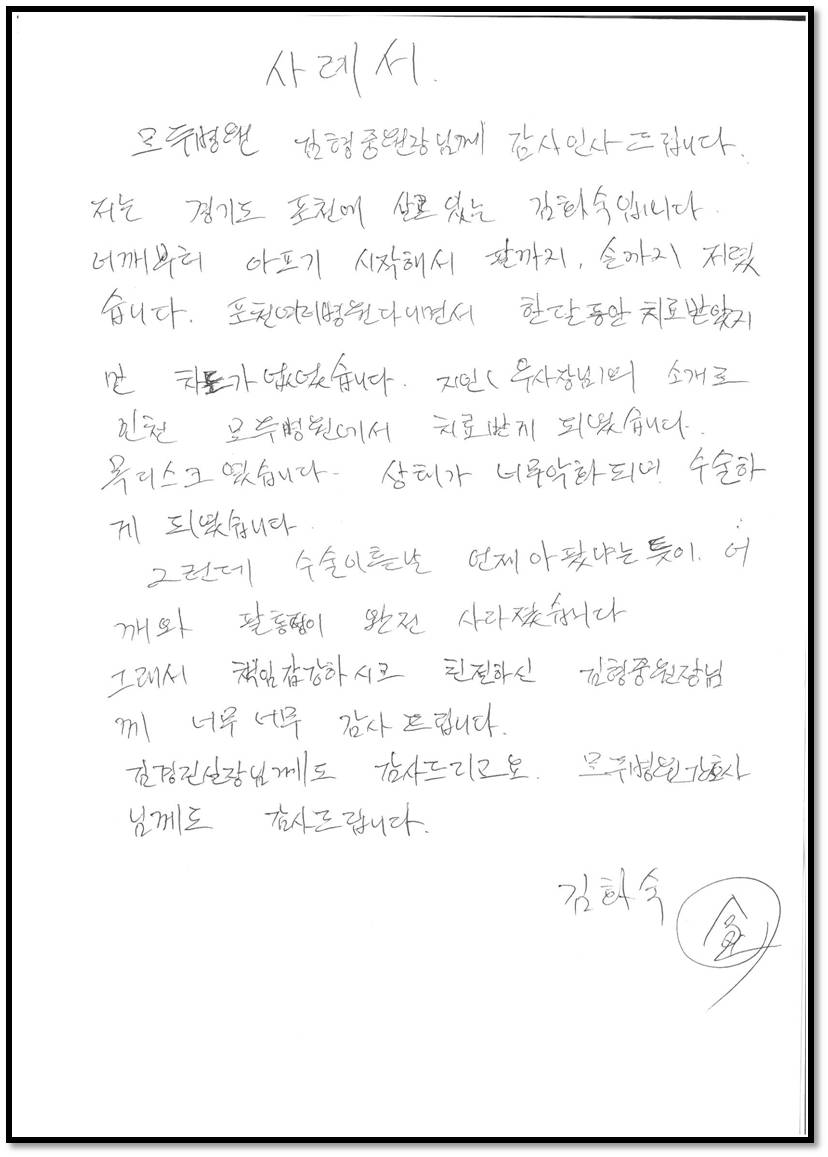 사례서.
모두병원 김형중원장님께 감사인사드립니다.
저는 경기도 포천에 살고 있는 김화숙입니다.
어깨부터 아프기 시작해서 팔까지, 손까지 저렸
습니다. 포천여리병원다니면서 한달동안 치료받았지
만 차도가 없었습니다. 지인(우사장님)의 소개로
인천 모두병원에서 치료받게 되었습니다.
목디스크였습니다. 상태가 너무악화되어 수술하
게 되었습니다.
그런데 수술이튿날 언제아팠냐는듯이. 어
깨와 팔통증이 완전 사라졌습니다
그래서 책임감강하시고 친절하신 김형중원장님
께 너무너무 감사드립니다.
김경린실장님께도 감사드리고요. 모두병원간호사
님께도 감사드립니다.
김화숙